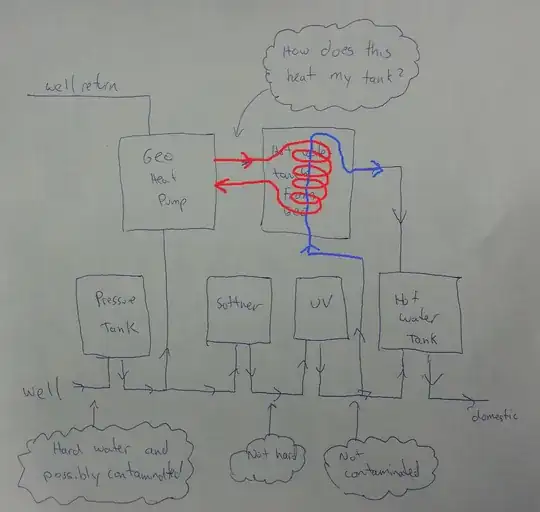 How does this
heat my tank?
well return
Geo
Heat
Pump
Hot water
tank
from
Geo
Pressure
Tank
Softner
UV
Hot
Water
Tank
well
domestic
Hard water and
possibly contaminated
Not hard
Not
contaminated